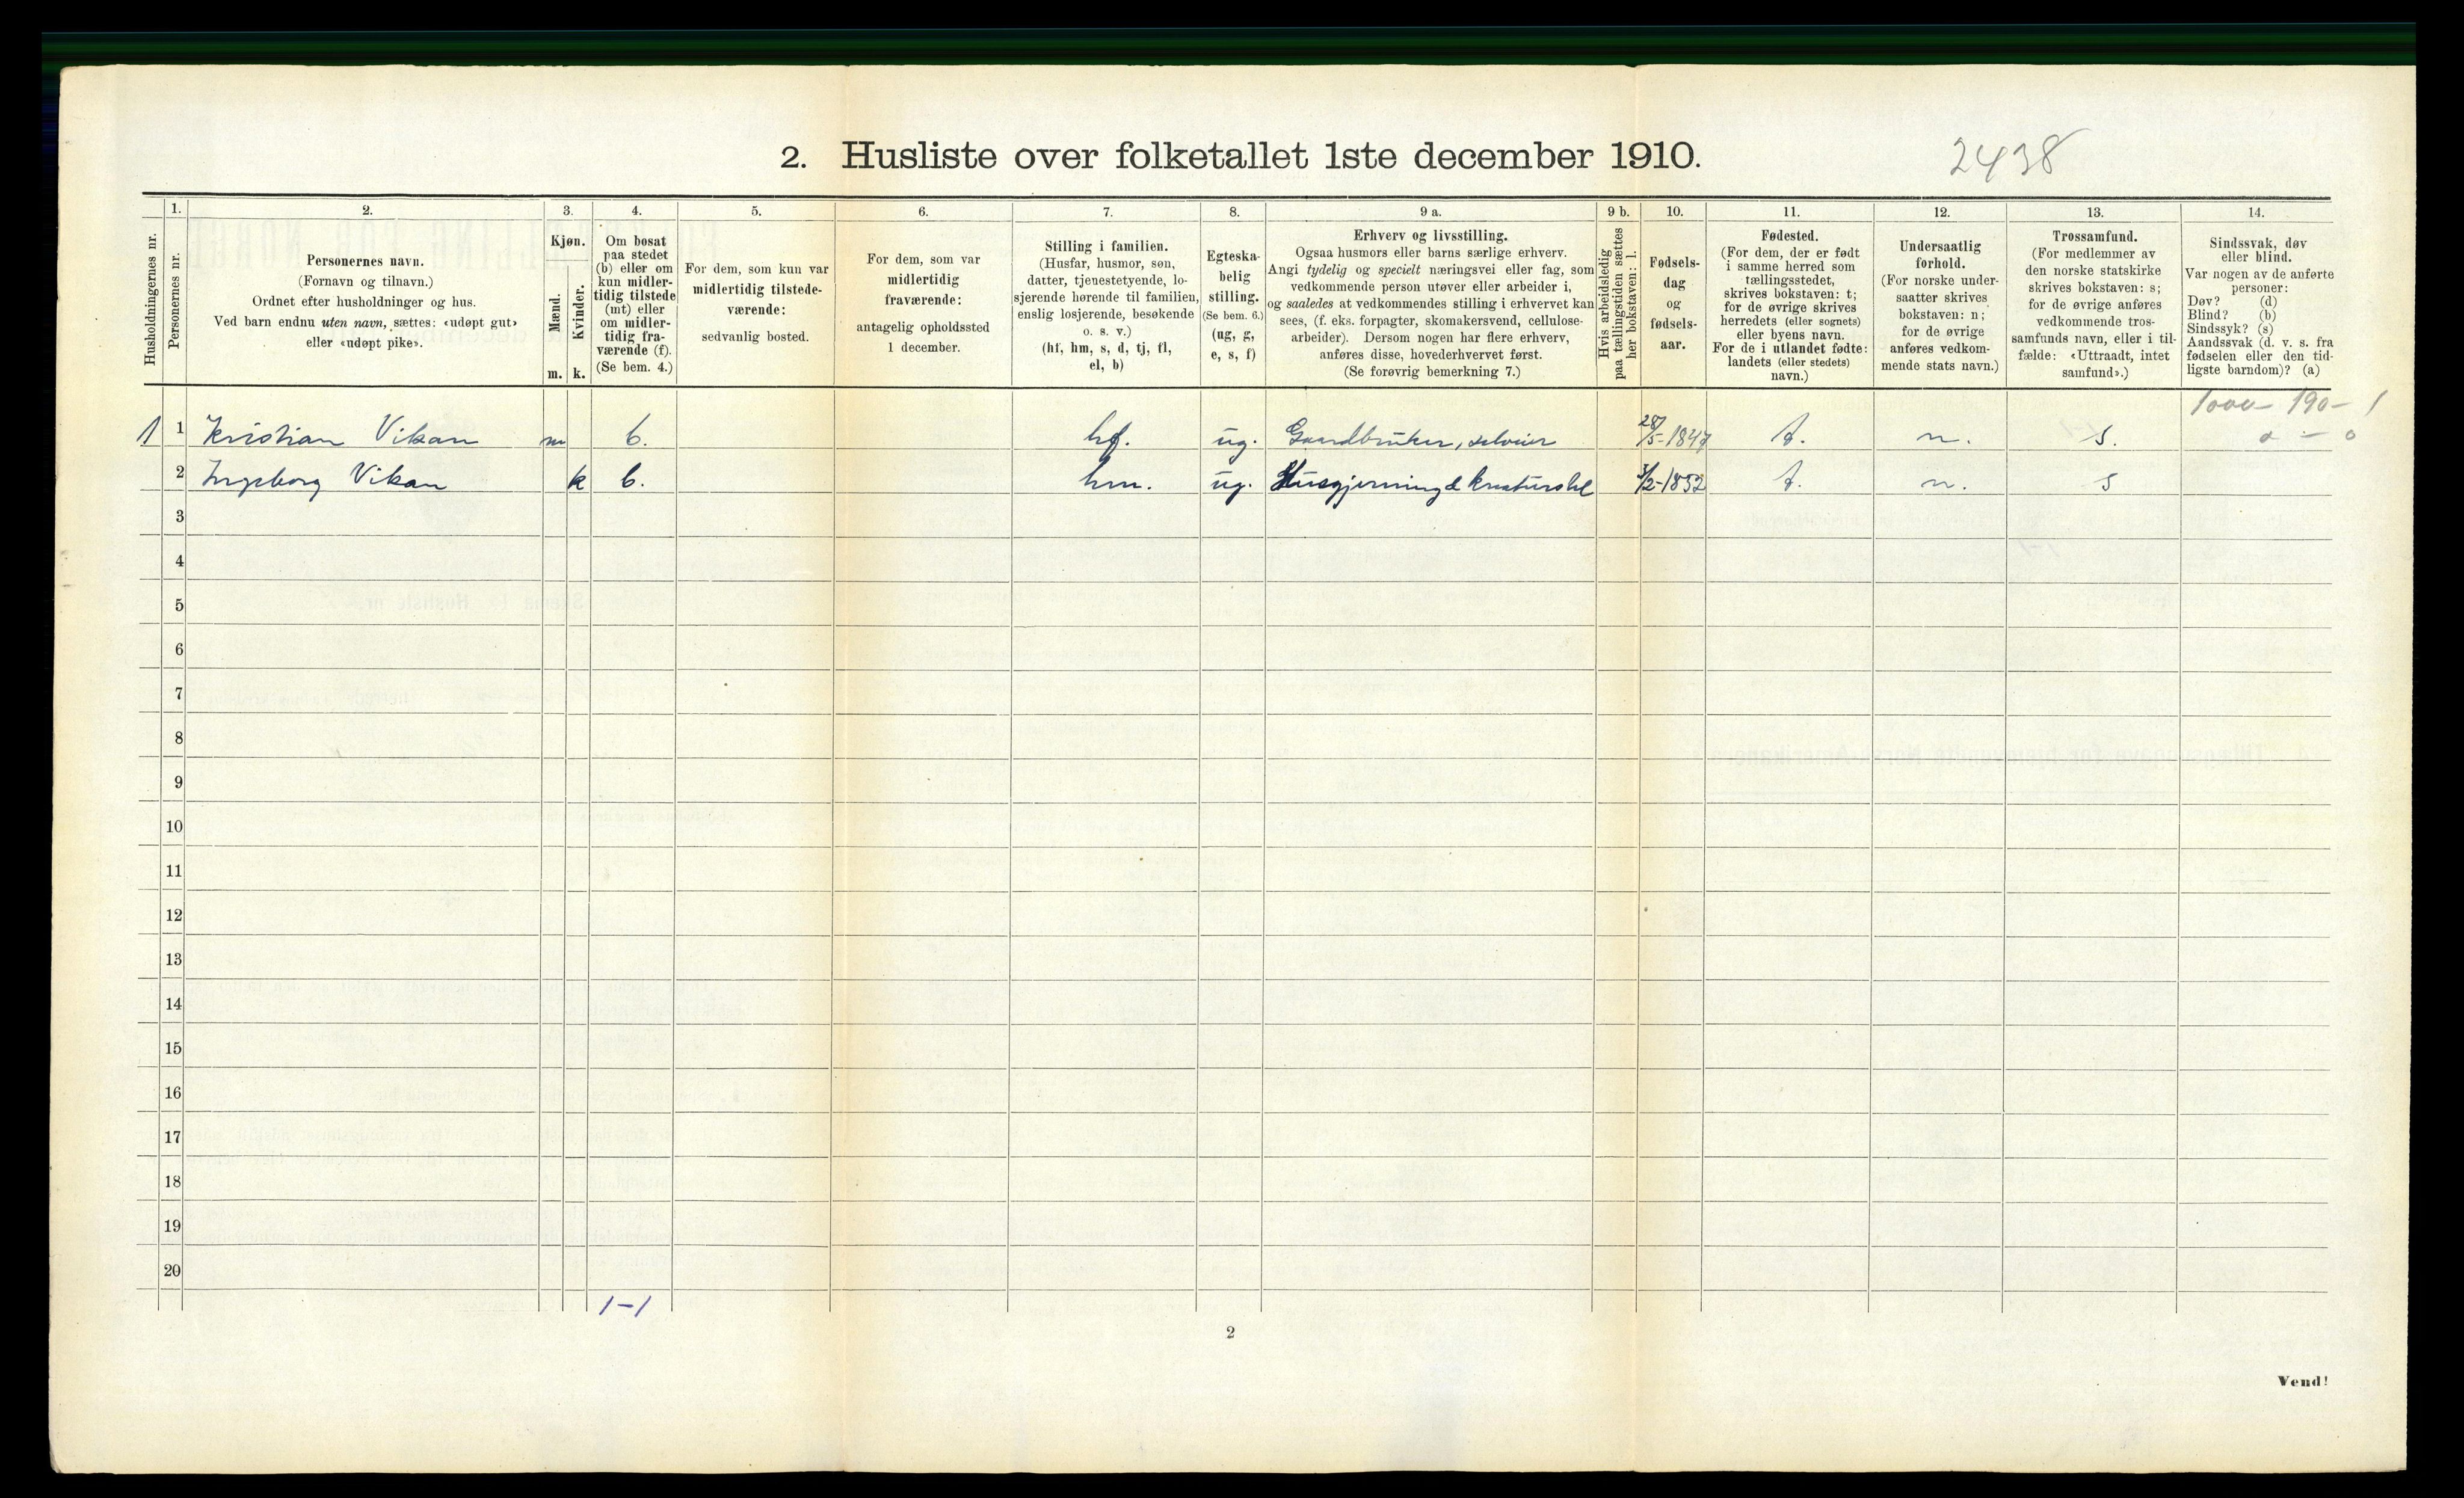 2. Husliste over folketallet 1ste december 1910.
2438
1.
2.
3.
4.
5.
6.
7.
8.
9 a.
9 b.
10.
11.
12.
13.
14.
Husholdningernes nr.
Personernes nr.
Personernes navn.
(Fornavn og tilnavn.)
Ordnet efter husholdninger og hus.
Ved barn endnu uten navn, sættes: «udøpt gut»
eller «udøpt pike».
Kjøn.
Mænd.
Kvinder.
m.
k.
Om bosat
paa stedet
(b) eller om
kun midler-
tidig tilstede
(mt) eller
om midler-
tidig fra-
værende (f).
(Se bem. 4.)
For dem, som kun var
midlertidig tilstede-
værende:
sedvanlig bosted.
For dem, som var
midlertidig
fraværende:
antagelig opholdssted
1 december.
Stilling i familien.
(Husfar, husmor, søn,
datter, tjenestetyende, lo-
sjerende hørende til familien,
enslig losjerende, besøkende
o. s. v.)
(hf, hm, s, d, tj, fl,
el, b)
Egteska-
belig
stilling.
(Se bem. 6.)
(ug, g,
e, s, f)
Erhverv og livsstilling.
Ogsaa husmors eller barns særlige erhverv.
Angi tydelig og specielt næringsvei eller fag, som
vedkommende person utøver eller arbeider i,
og saaledes at vedkommendes stilling i erhvervet kan
sees, (f. eks. forpagter, skomakersvend, cellulose-
arbeider). Dersom nogen har flere erhverv,
anføres disse, hovederhvervet først.
(Se forøvrig bemerkning 7.)
Hvis arbeidsledig
paa tællingstiden sættes
her bokstaven: l.
Fødsels-
dag
og
fødsels-
aar.
Fødested.
(For dem, der er født
i samme herred som
tællingsstedet,
skrives bokstaven: t;
for de øvrige skrives
herredets (eller sognets)
eller byens navn.
For de i utlandet fødte:
landets (eller stedets)
navn.)
Undersaatlig
forhold.
(For norske under-
saatter skrives
bokstaven: n;
for de øvrige
anføres vedkom-
mende stats navn.)
Trossamfund.
(For medlemmer av
den norske statskirke
skrives bokstaven: s;
for de øvrige anføres
vedkommende tros-
samfunds navn, eller i til-
fælde: «Uttraadt, intet
samfund».)
Sindssvak, døv
eller blind.
Var nogen av de anførte
personer:
Døv? (d)
Blind? (b)
Sindssyk? (s)
Aandssvak (d. v. s. fra
fødselen eller den tid-
ligste barndom)? (a)
1000 - 190 - 1
1 1 Kristian Vikan m b. hf. ug. Gaardbruker, selveier 28/5-1847 t. n. s. 0 - 0
2 Ingeborg Vikan k b. hm. ug. Husgjerning & kreaturstel 3/2-1852 t. n. s
3
4
5
6
7
8
9
10
11
12
13
14
15
16
17
18
19
20
1-1
2
Vend!